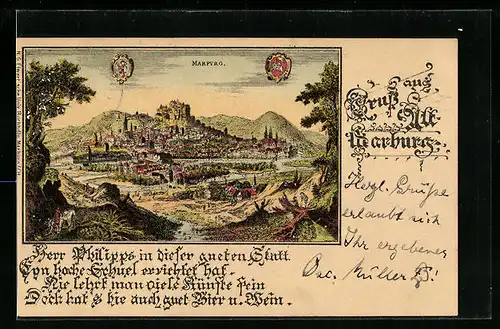 MARPVRG.
Gruß aus
Alt-
Marburg.
Herzl. Grüße
erlaubt sich
Ihr ergebener
Osc. Müller
Herr Philipps in dieser gueten Statt
Eyn hoche Schuel errichtet hat.
Hie lehrt man viele Künste fein
Doch hat's hie auch guet Bier u. Wein.